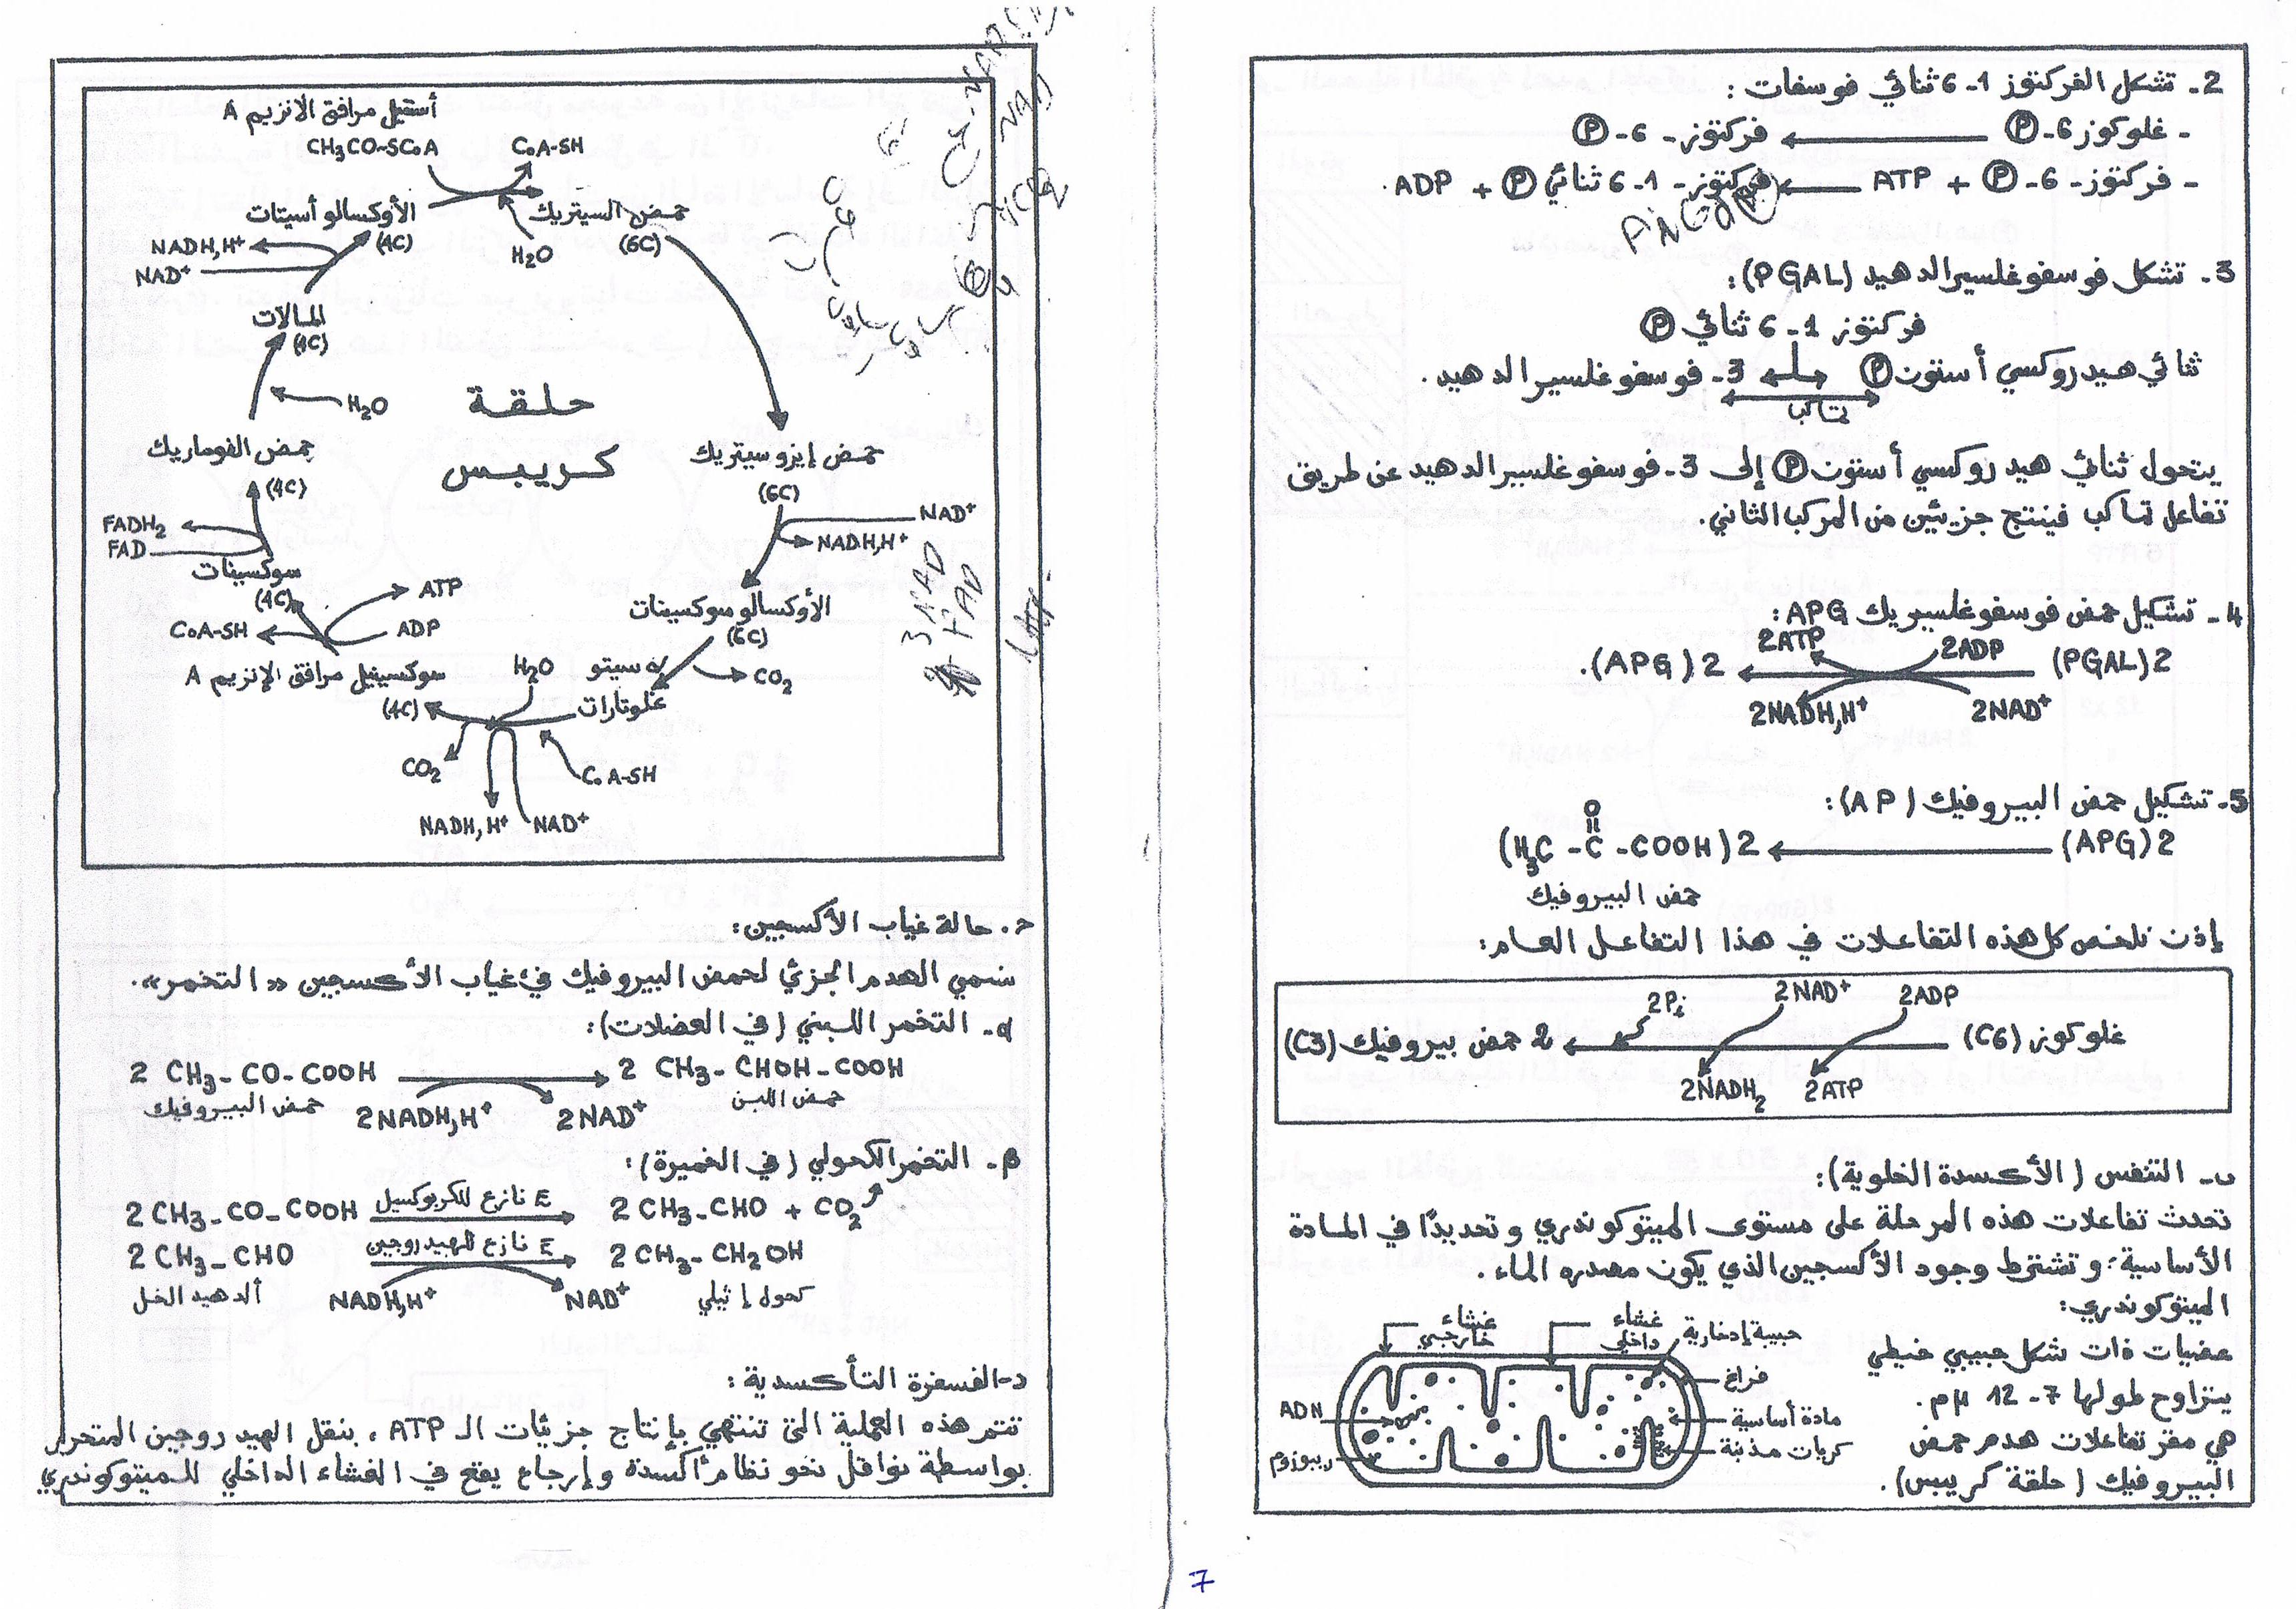 2ـ تشكل الفركتوز 1ـ6 ثنائي فوسفات :
- غلوكوز 6-P ← فركتوز - 6 -P
- فركتوز- 6 -P + ATP ← فركتوز- 1-6 ثنائي P + ADP .
3. تشكل فوسفوغليسيرالدهيد (PGAL):
فركتوز 1-6 ثنائي P
ثنائي هيدروكسي أستون P ↔ 3- فوسفوغلسيرالدهيد .
تماكب
يتحول ثنائي هيدروكسي أستون P إلى 3-فوسفوغلسيرالدهيد عن طريق
تفاعل تماكب فينتج جزيئين من المركب الثاني.
4ـ تشكيل حمض فوسفوغلسيريك APG:
2ATP 2ADP
2(PGAL) ← 2(APG).
2NADH,H⁺ 2NAD⁺
5ـ تشكيل حمض البيروفيك (AP):
2(APG) ← 2(H₃C-C-COOH)
O
حمض البيروفيك
إذن نلخص كل هذه التفاعلات في هذا التفاعل العام:
2Pi 2NAD⁺ 2ADP
غلوكوز (C6) ← 2 حمض بيروفيك (C3)
2NADH₂ 2ATP
ب- التنفس (الأكسدة الخلوية):
تحدث تفاعلات هذه المرحلة على مستوى الميتوكوندري و تحديدًا في المادة
الأساسية؛ و تشترط وجود الأكسجين الذي يكون مصدره الماء.
الميتوكوندري:
عضيات ذات شكل حبيبي خيطي
يتراوح طولها 7- 12 μم.
هي مقر تفاعلات هدم حمض
البيروفيك (حلقة كريبس).
غشاء خارجي
غشاء داخلي
حبيبة إدخارية
فراغ
مادة أساسية
كريات مذنبة
ADN
ريبوزوم
7
أستيل مرافق الانزيم A
CH₃CO~SCoA CoA-SH
الأوكسالو أسيتات
(4C)
حمض السيتريك
(6C)
H₂O
NADH,H⁺
NAD⁺
المالات
(4C)
H₂O
حلقة
كريبس
حمض الفوماريك
(4C)
حمض إيزوسيتريك
(6C)
NAD⁺
NADH,H⁺
FADH₂
FAD
سوكسينات
(4C)
ATP
ADP
CoA-SH
الأوكسالوسوكسينات
(6C)
CO₂
سوكسينيل مرافق الإنزيم A
(4C)
H₂O
α سيتو
غلوتارات
CO₂
CoA-SH
NADH,H⁺ NAD⁺
3 NAD
FAD
ح. حالة غياب الأكسجين:
نسمي الهدم الجزئي لحمض البيروفيك في غياب الأكسجين «التخمر».
α- التخمر اللبني (في العضلات):
2 CH₃-CO-COOH → 2 CH₃-CHOH-COOH
حمض البيروفيك 2NADH,H⁺ 2NAD⁺ حمض اللبن
β- التخمر الكحولي (في الخميرة):
2CH₃-CO-COOH E نازع للكربوكسيل → 2 CH₃-CHO + CO₂
2 CH₃-CHO E نازع للهيدروجين → 2 CH₃-CH₂OH
ألدهيد الخل NADH,H⁺ NAD⁺ كحول إثيلي
د-الفسفرة التأكسدية :
تتم هذه العملية التي تنتهي بإنتاج جزيئات الـ ATP ، بنقل الهيدروجين المتحرر
بواسطة نواقل نحو نظام أكسدة و إرجاع يقع في الغشاء الداخلي للميتوكوندري